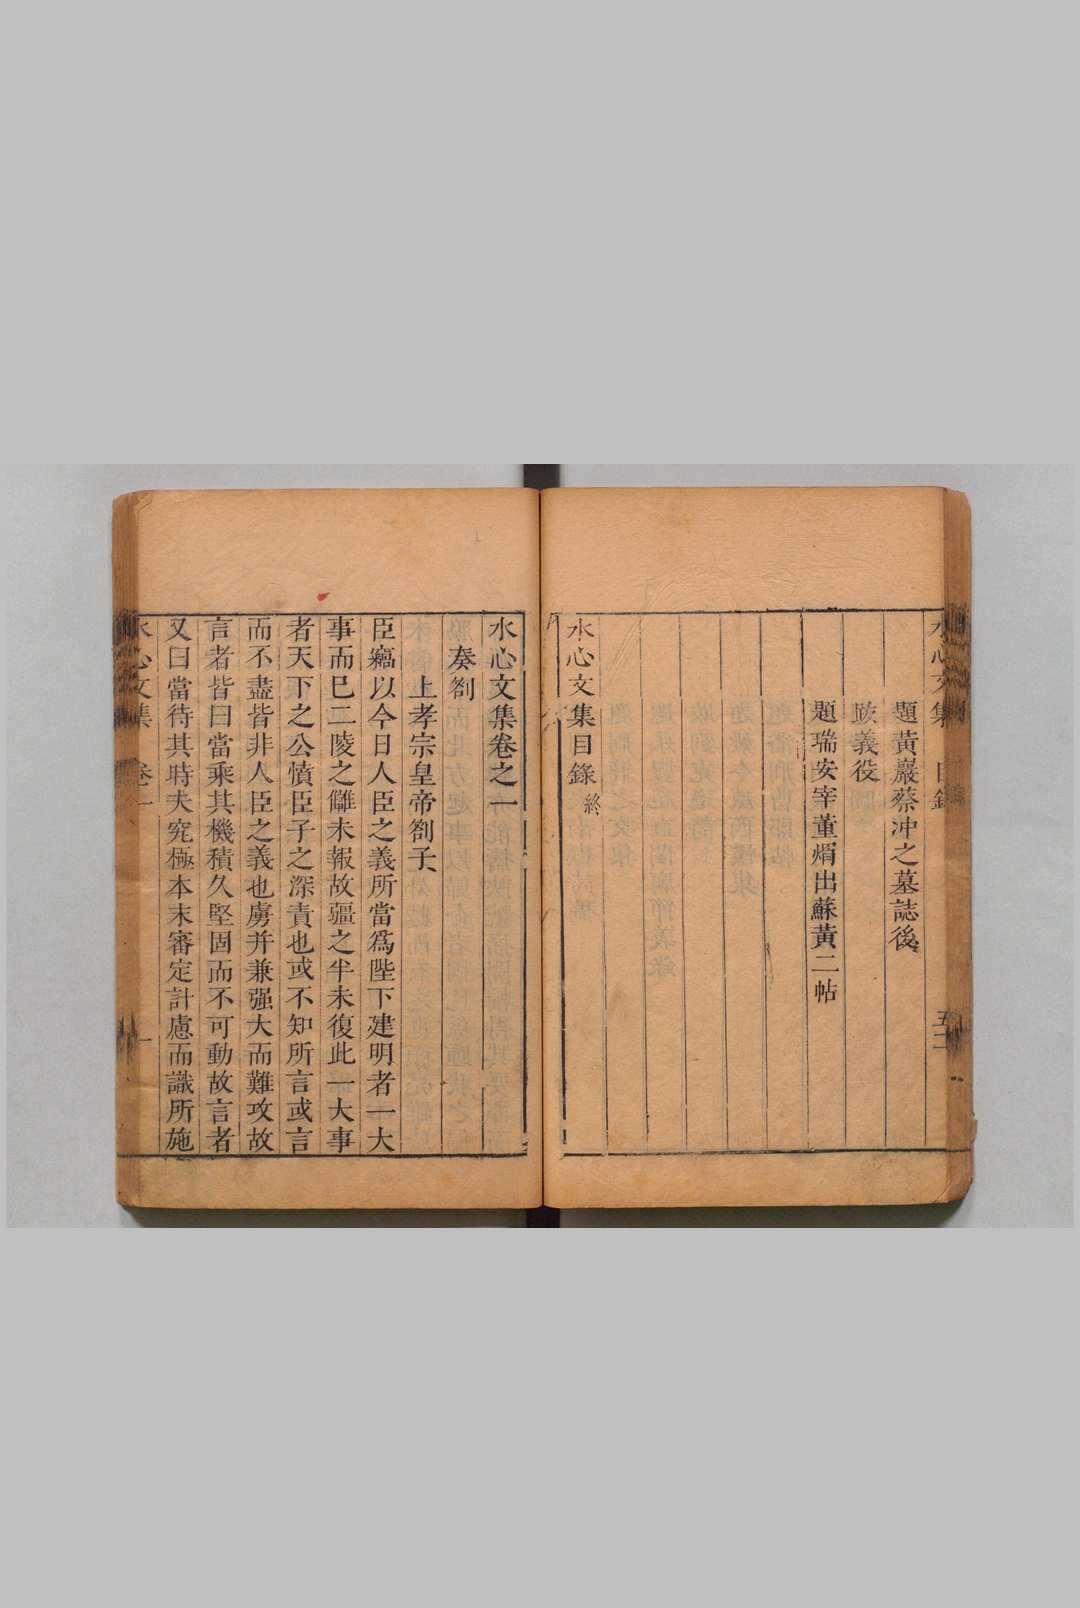 水心文集 目錄
五二
題黃巖蔡沖之墓誌後
跋義役
題瑞安宰董煟出蘇黃二帖
水心文集目錄終
水心文集卷之一
奏劄
上孝宗皇帝劄子
臣竊以今日人臣之義所當爲陛下建明者一大
事而已二陵之讎未報故疆之半未復此一大事
者天下之公憤臣子之深責也或不知所言或言
而不盡皆非人臣之義也虜并兼强大而難攻故
言者皆曰當乘其機積久堅固而不可動故言者
又曰當待其時夫究極本末審定計慮而識所施
水心文集 卷一
一